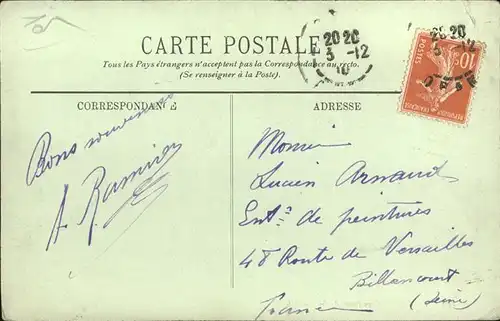 CARTE POSTALE
Tous les Pays étrangers n'acceptent pas la Correspondance au recto.
(Se renseigner à la Poste).
20 20
3 -12
10
20 20
3 -12
10
POSTES
CORRESPONDANCE
ADRESSE
Bons souvenirs
A.
Lucien Arnaud
Entr de peintures
48 Route de Versailles
Billancourt
(Seine)
France